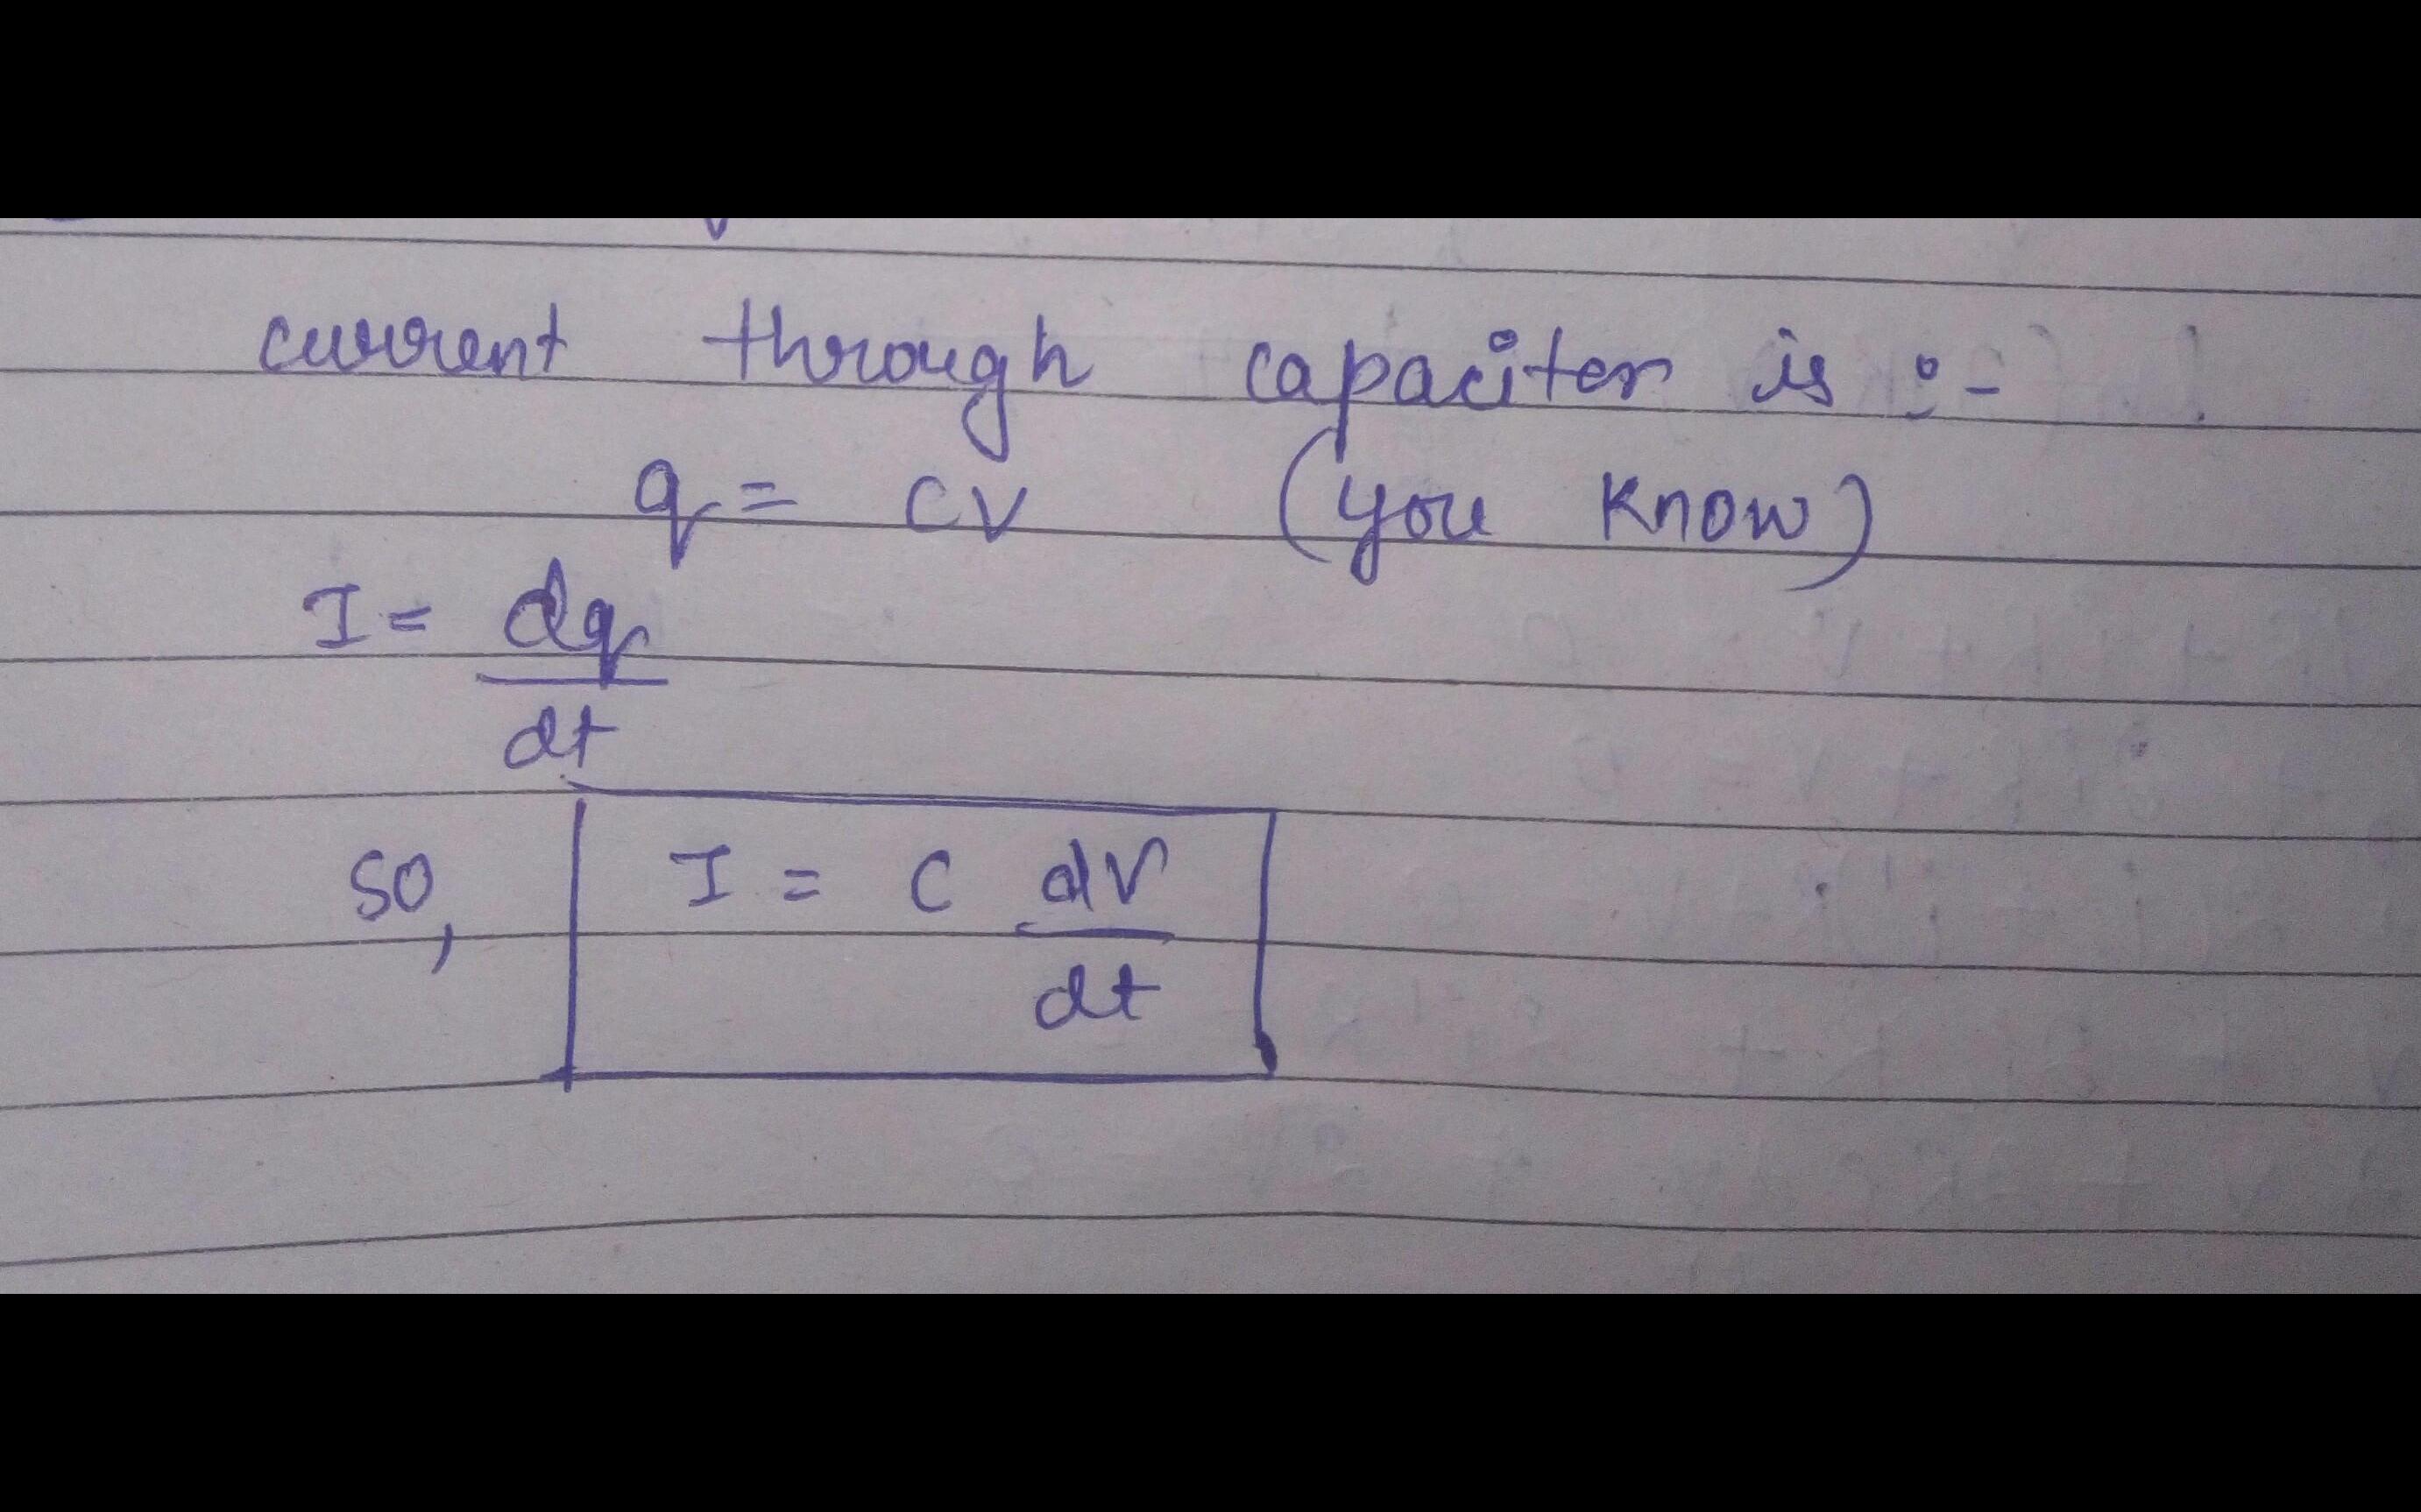 current through capaciter is :-
q = CV (you know)
I = dq
dt
so, I = C dV
dt